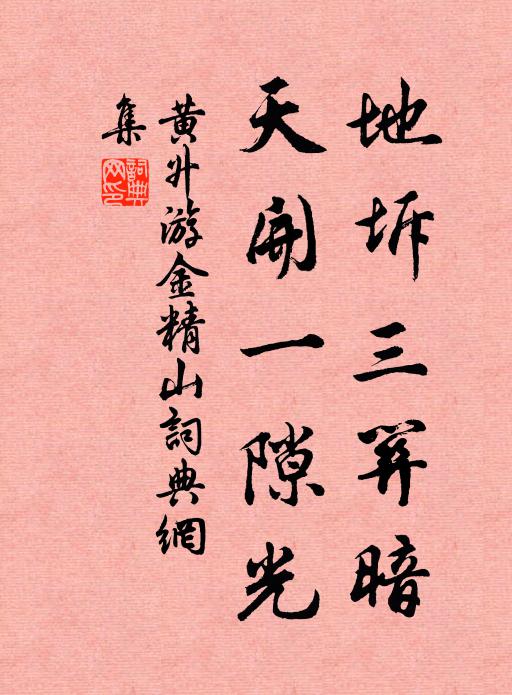 地坼三弄暗
天開一隙光
黄升游金精山詞典網
集
詞典網印